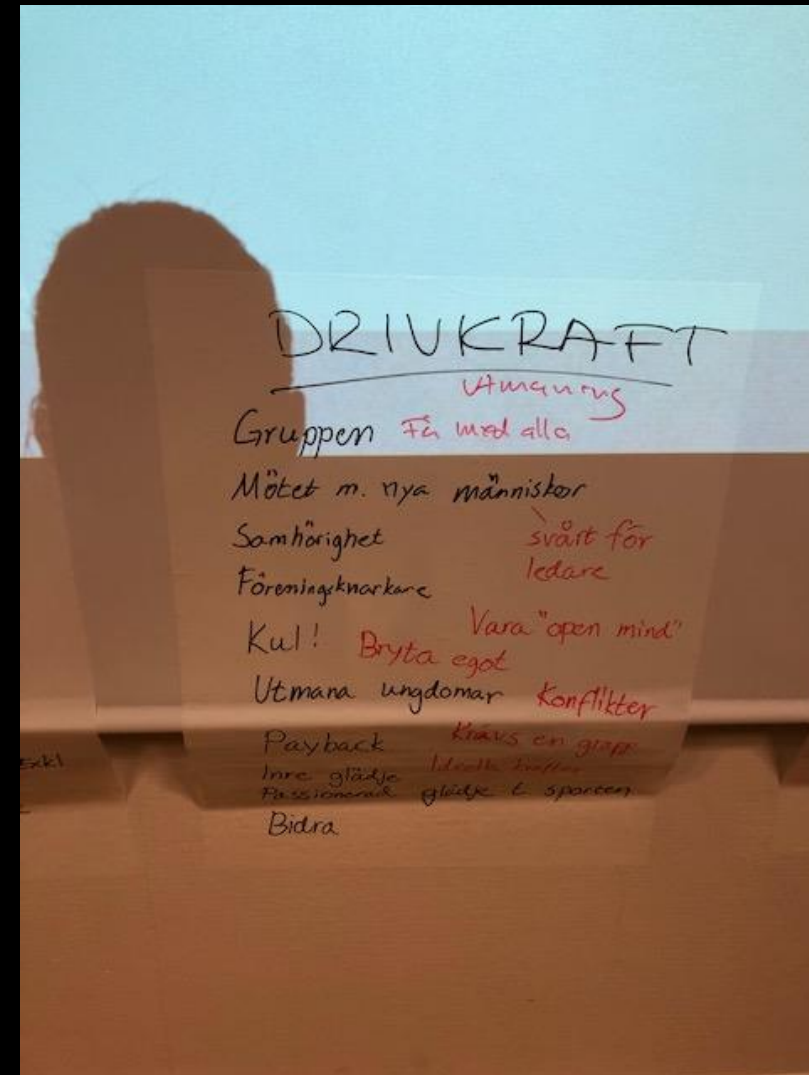 DRIVKRAFT
Utmaning
Gruppen Få med alla
Mötet m. nya människor
Samhörighet svårt för
ledare
Föreningsknarkare
Kul! Vara "open mind"
Bryta egot
Utmana ungdomar Konflikter
Payback Krävs en grupp
Inre glädje Ideella krafter
Passionerad glädje t sporten
Bidra